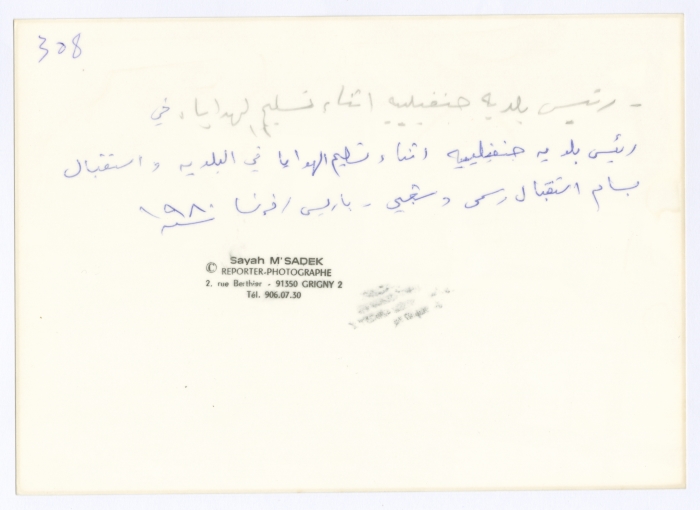 308
- رئيس بلدية جنفيلييه اثناء تسليم الهدايا، في
رئيس بلدية جنفيلييه اثناء تسليم الهدايا في البلديه و استقبال
بسام استقبال رسمي و شعبي - باريس / فرنسا سنة ١٩٨٠
Sayah M'SADEK
© REPORTER-PHOTOGRAPHE
2, rue Berthier - 91350 GRIGNY 2
Tél. 906.07.30